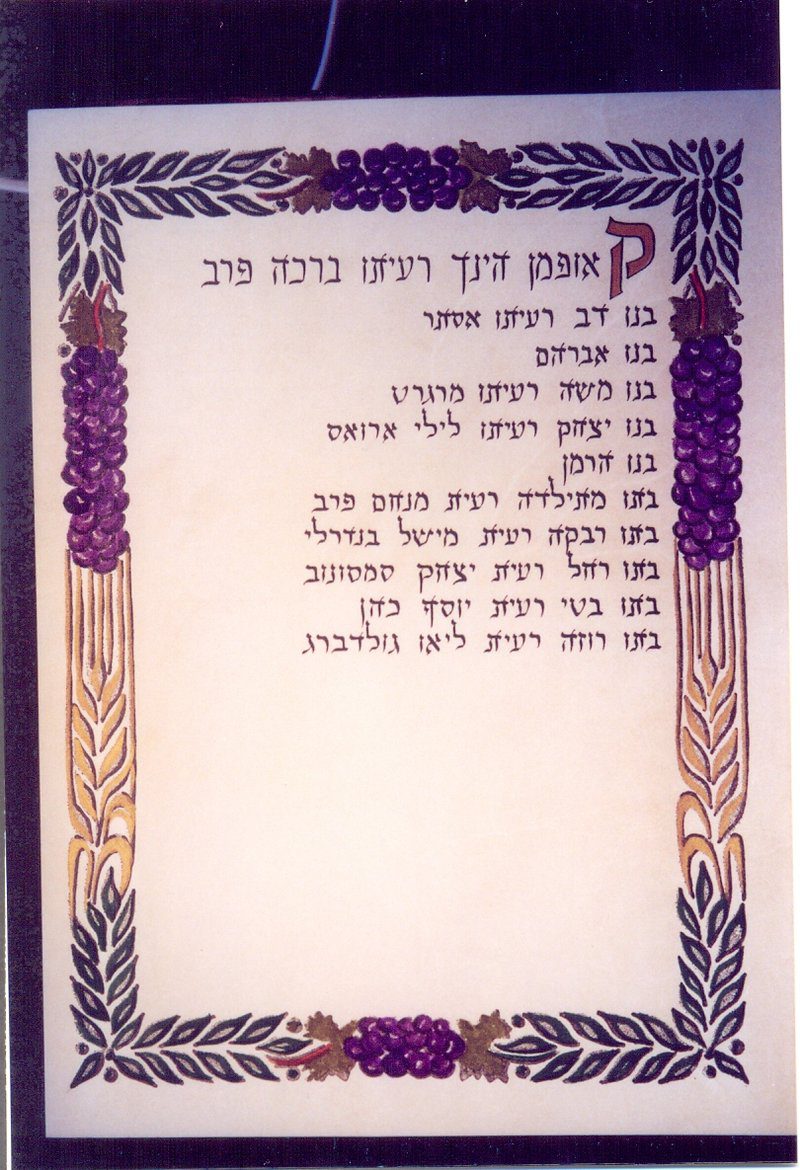 קאופמן הינך רעיתו ברכה פרב
בנו דב רעיתו אסתר
בנו אברהם
בנו משה רעיתו מרגרט
בנו יצחק רעיתו לילי ארואס
בנו הרמן
בתו מתילדה רעית מנחם פרב
בתו רבקה רעית מישל בנדרלי
בתו רחל רעית יצחק סמסונוב
בתו בטי רעית יוסף כהן
בתו רוזה רעית ליאו גולדברג